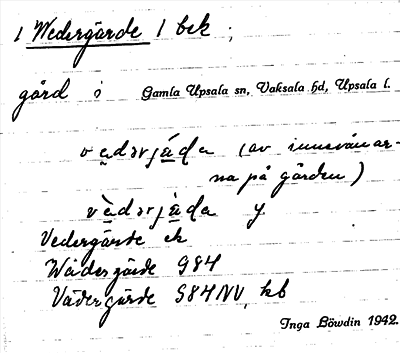 1 Wedergärde 1 bek ;
gård i Gamla Upsala sn, Vaksala hd, Upsala l.
vadərjä́da (av innevånar-
na på gården)
vàdərjä̀da y
Vedergärde ek
Wädergärde G84
Vädergärde S84NV, kb
Inga Löwdin 1942.